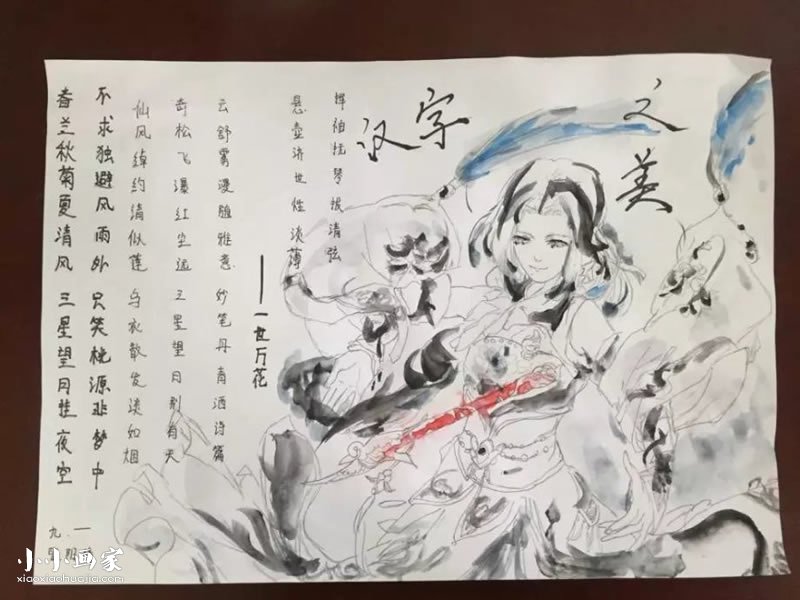 汉字之美
挥袖抚琴拨清弦
悬壶济世性淡薄
——一世万花
云舒雾漫随雅意 妙笔丹青洒诗篇
奇松飞瀑红尘远 三星望月别有天
仙风绰约清似莲 乌衣散发淡如烟
不求独避风雨外 只笑桃源非梦中
春兰秋菊夏清风 三星望月挂夜空
九.一
小小画家
xiaoxiaohuajia.com